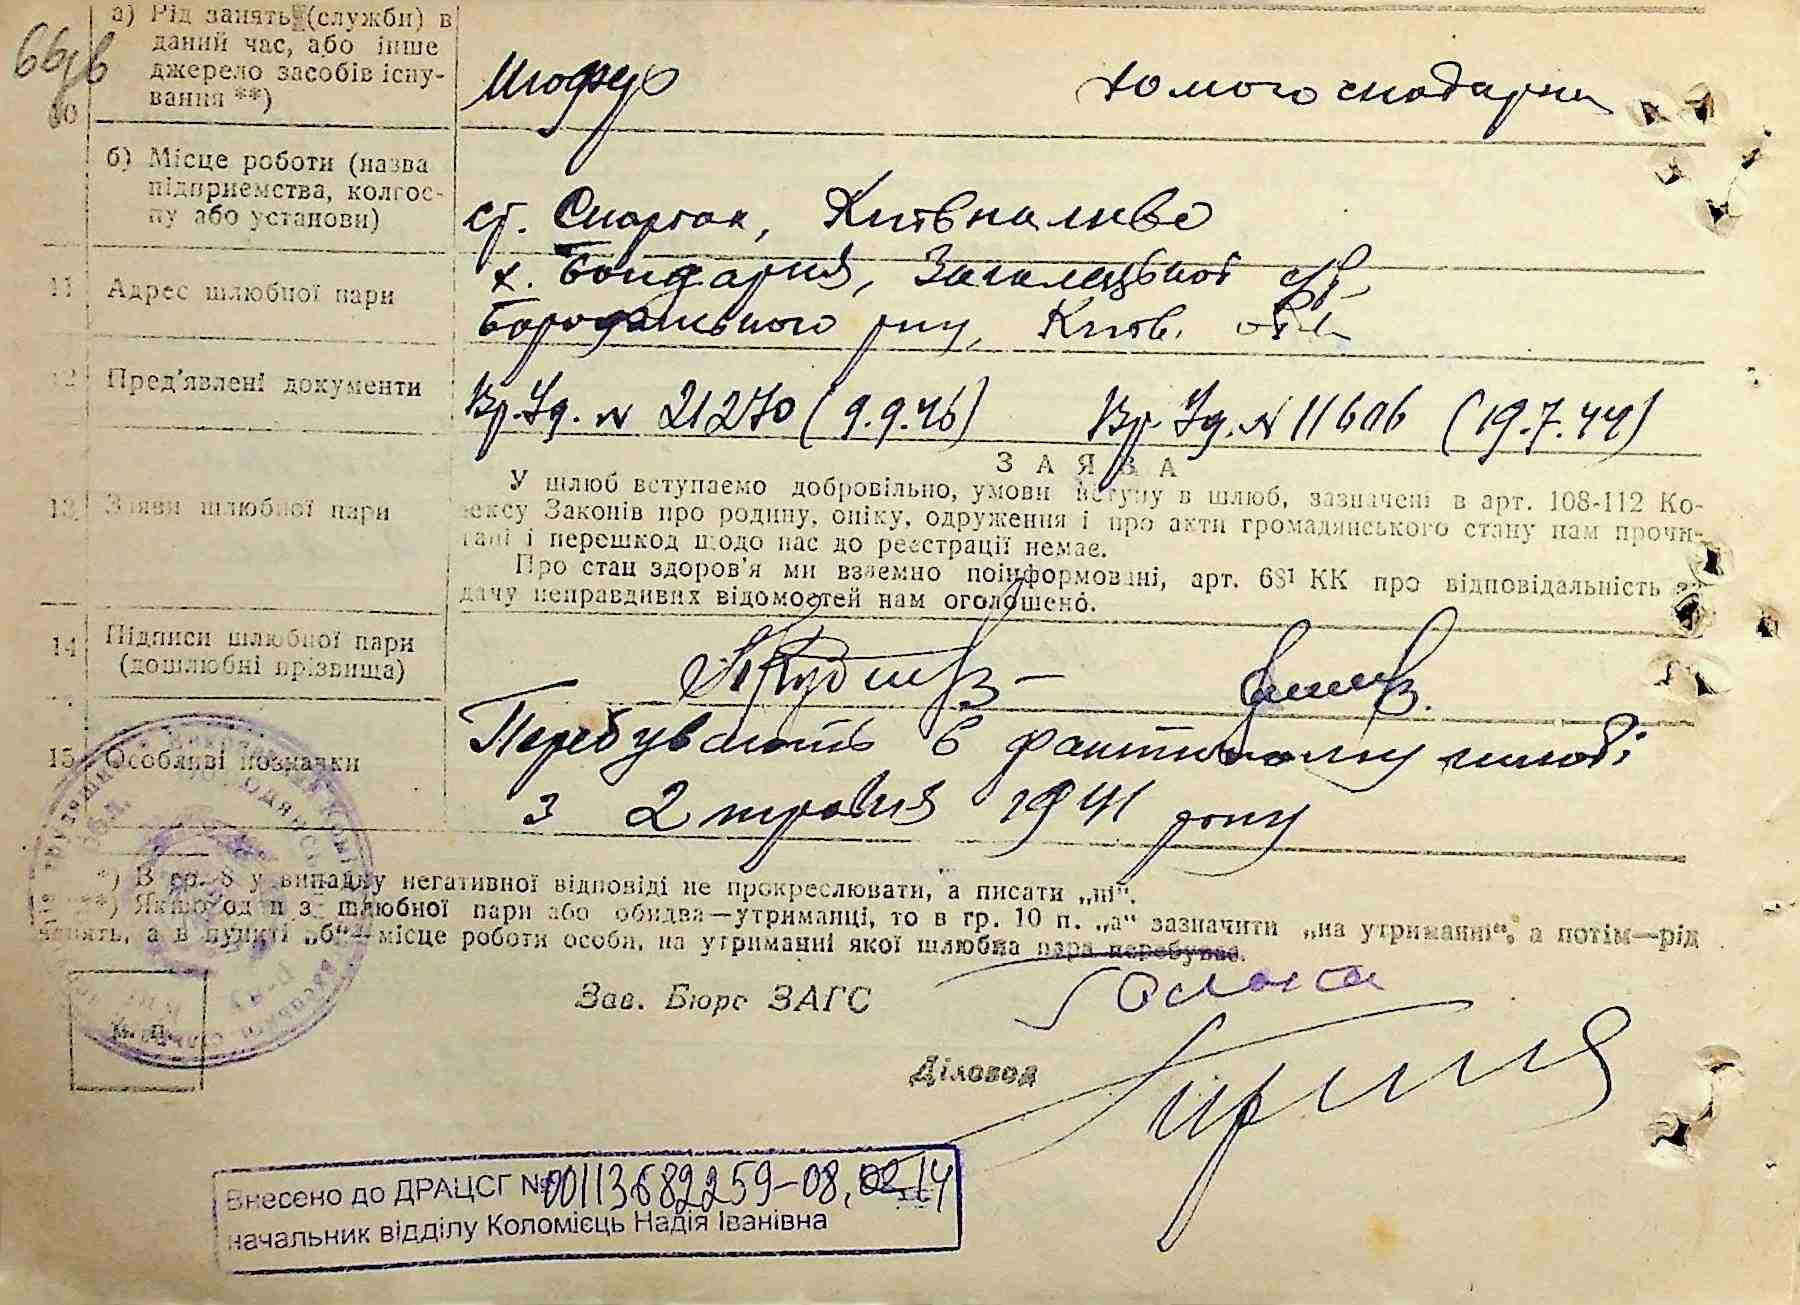 66
10 а) Рід занять (службн) в
даний час, або інше
джерело засобів існу-
вання **)
Шофер
домогосподарка
б) Місце роботи (назва
підприємства, колгос-
пу або установи)
ст. Спартак,
11 Адрес шлюбної пари
х. Бондарня, Загалецької с/р
Бородянського р-ну, Київ. обл
12 Пред'явлені документи
Вр. Уд. № 21270 (9.9.46)
Вр. Уд. № 11606 (19.7.44)
13 Заяви шлюбної пари
ЗАЯВА
У шлюб вступаємо добровільно, умови вступу в шлюб, зазначені в арт. 108-112 Ко-
дексу Законів про родину, опіку, одруження і про акти громадянського стану нам прочи-
тані і перешкод щодо нас до реєстрації немає.
Про стан здоров'я ми взаємно поінформовані, арт. 68¹ КК про відповідальність за
дачу неправдивих відомостей нам оголошено.
14 Підписи шлюбної пари
(дошлюбні прізвища)
15 Особливі позначки
Перебувають в фактичному шлюбі
з 2 травня 1941 року
*) В гр. 8 у випадку негативної відповіді не прокреслювати, а писати „ні".
**) Якщо один з шлюбної пари або обидва—утриманці, то в гр. 10 п. „а" зазначити „на утриманні", а потім—рід
занять, а в пункті „б"—місце роботи особи, на утриманні якої шлюбна пара перебуває.
Зав. Бюро ЗАГС
Діловод
М. П.
Внесено до ДРАЦСГ №00113682259-08.02.14
начальник відділу Коломієць Надія Іванівна